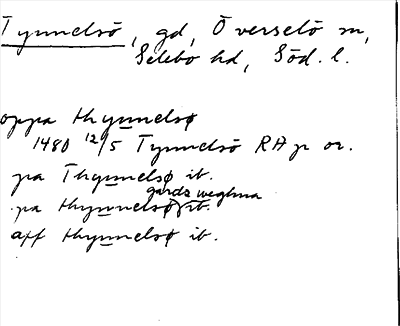 Tynnelsö, gd, Överselö sn,
Selebo hd, Söd. l.
oppa thynnelsø
1480 12/5 Tynnelsö RAp or.
pa Thynnelsø ib.
gardz weghna
pa thynnelsø ib.
aff thynnelsø ib.